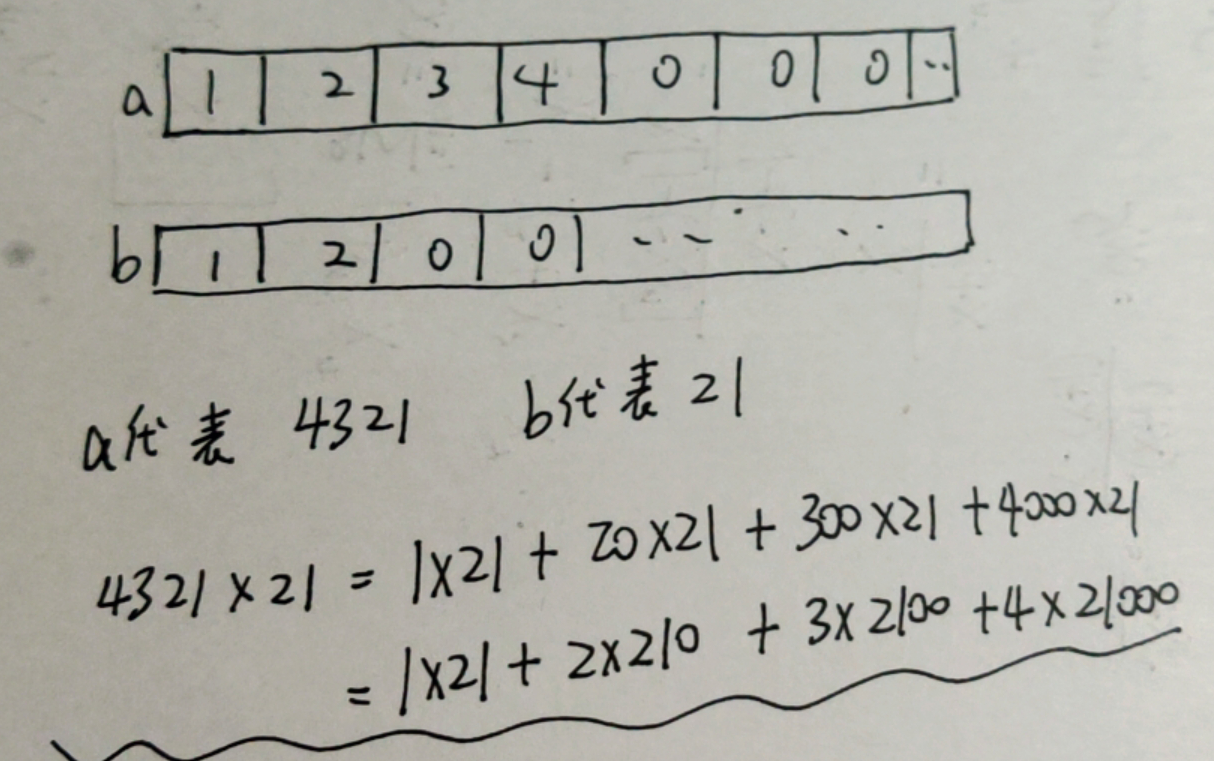 a 1 2 3 4 0 0 0 ..
b 1 2 0 0 -- ..
a代表 4321 b代表 21
4321 × 21 = 1×21 + 20×21 + 300×21 + 4000×21
= 1×21 + 2×210 + 3×2100 + 4×21000